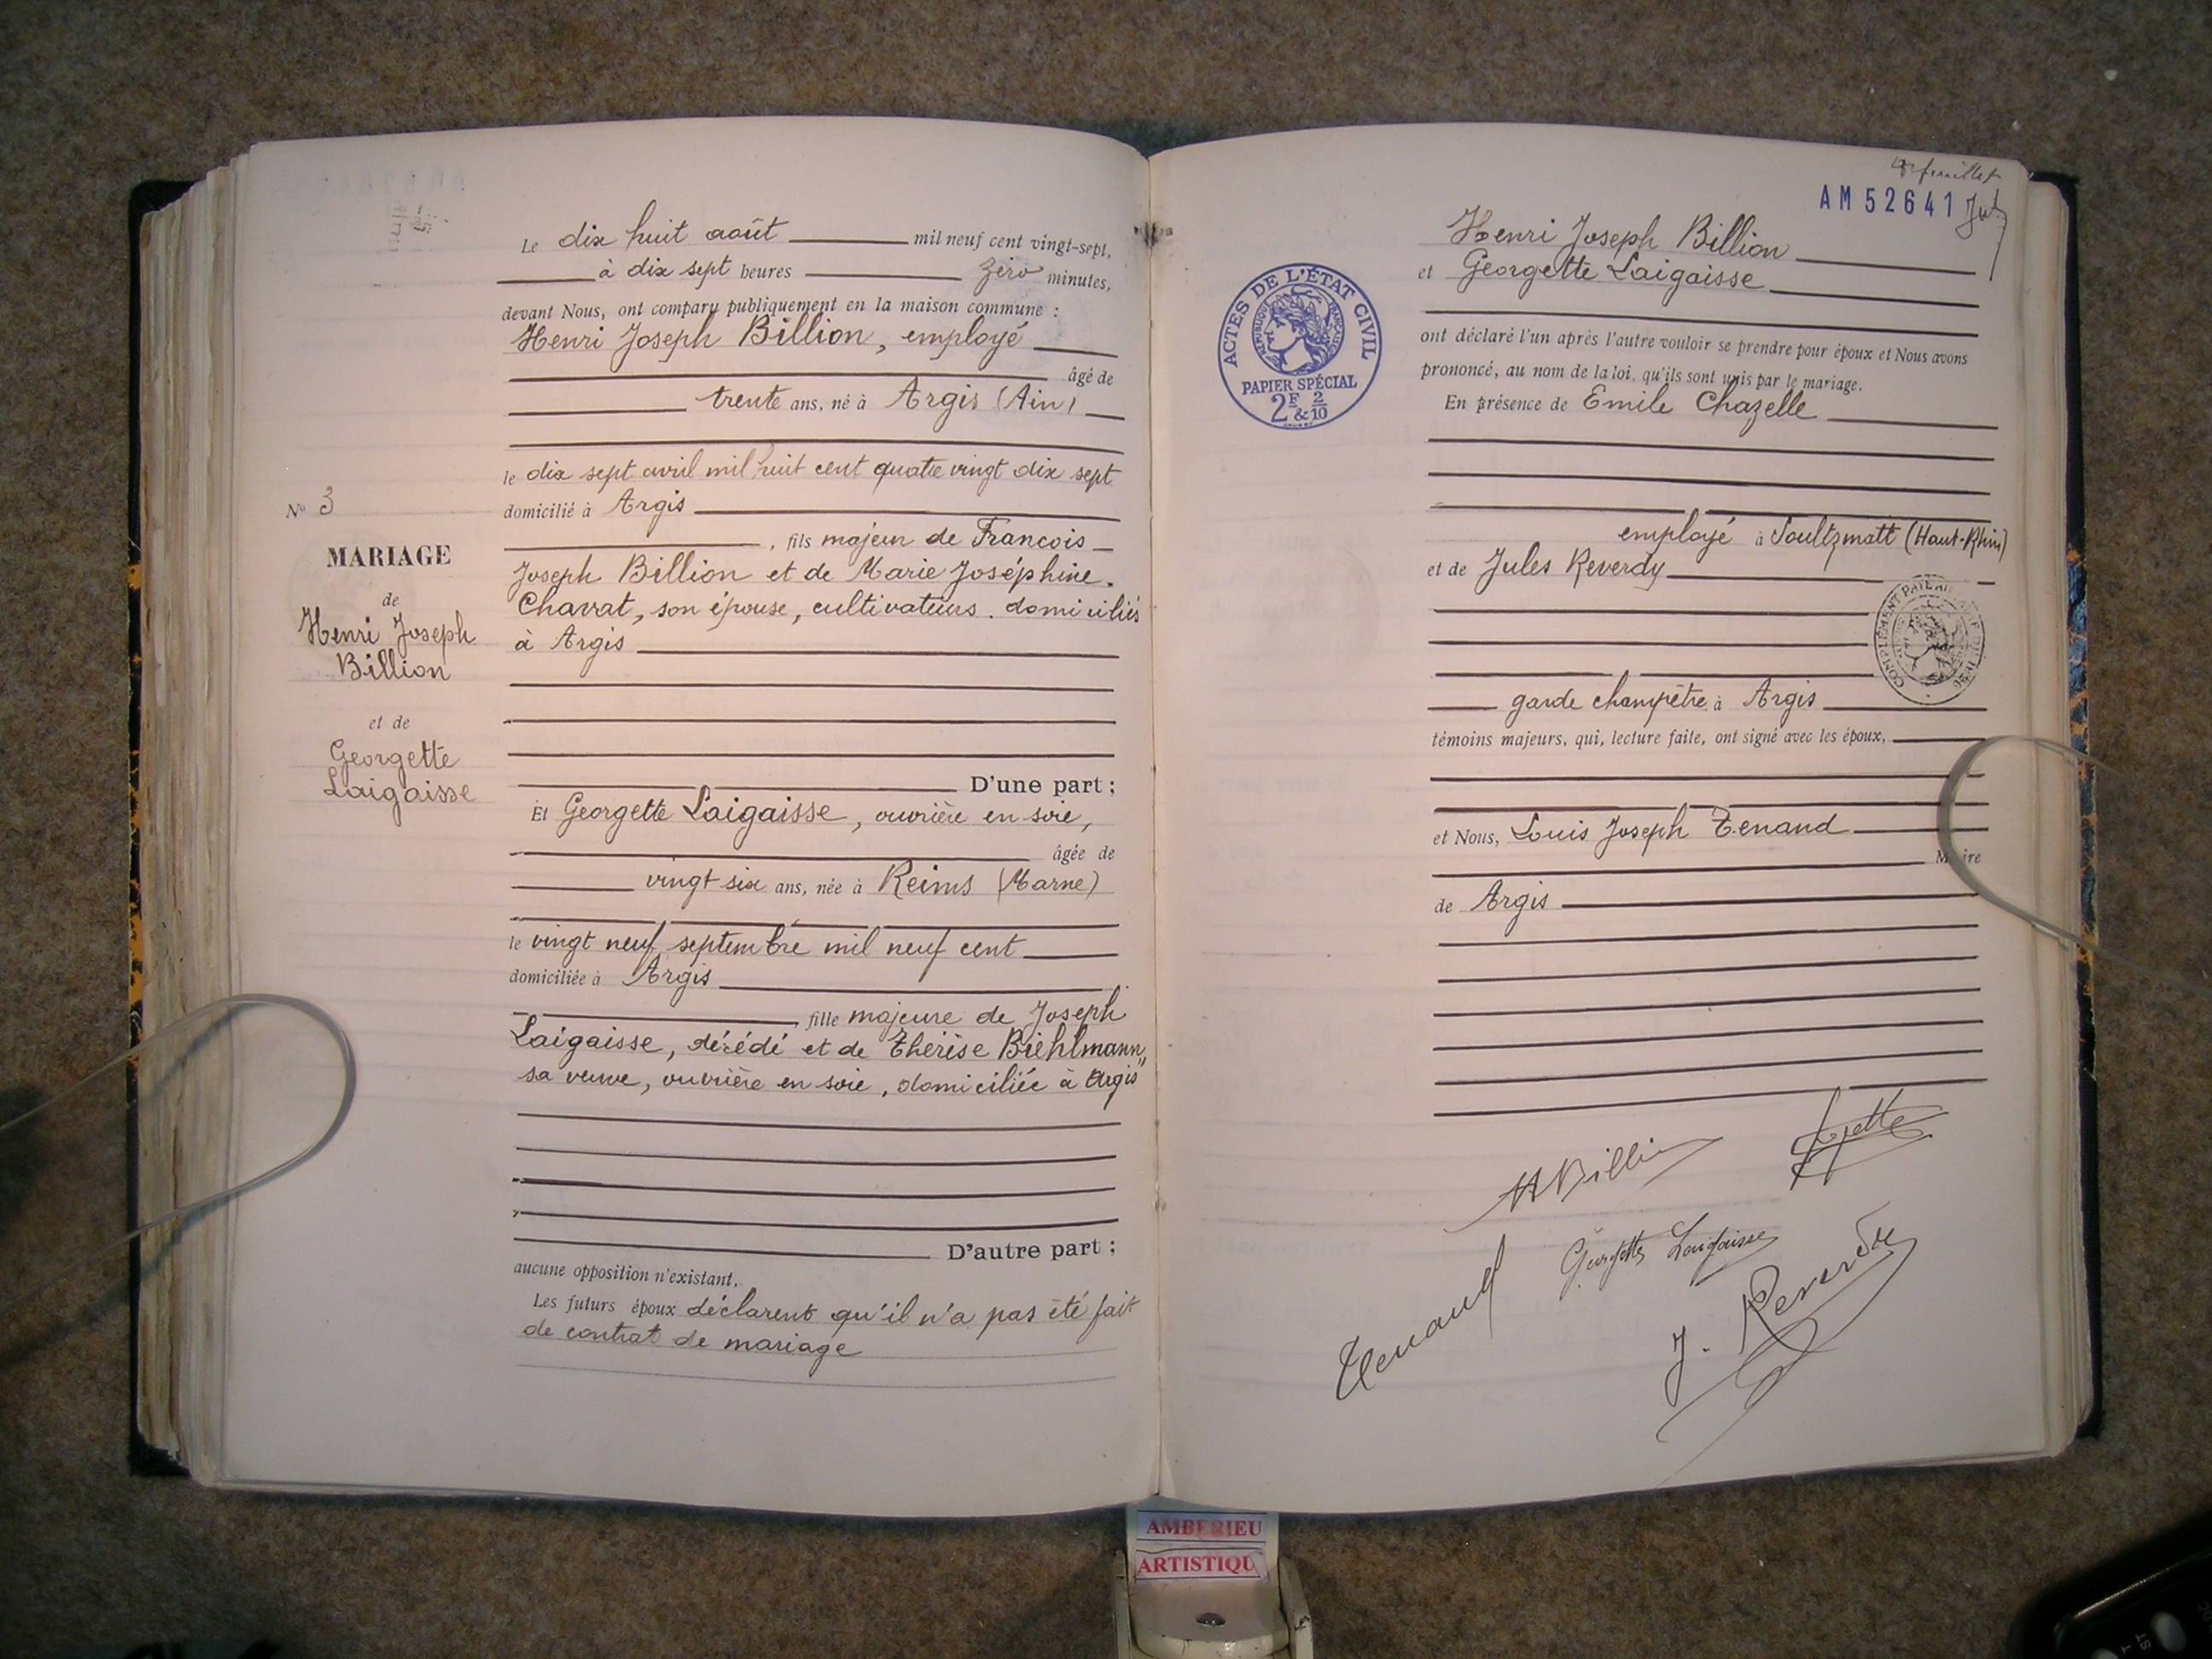 Le dix huit août mil neuf cent vingt-sept,
à dix sept heures zéro minutes,
devant Nous, ont comparu publiquement en la maison commune :
Henri Joseph Billion, employé
âgé de
trente ans, né à Argis (Ain)
le dix sept avril mil huit cent quatre vingt dix sept
domicilié à Argis
, fils majeur de Francois
Joseph Billion et de Marie Joséphine
Charrat, son épouse, cultivateurs domiciliés
à Argis
D'une part ;
Et Georgette Laigaisse, ouvrière en soie,
âgée de
vingt six ans, née à Reims (Marne)
le vingt neuf septembre mil neuf cent
domiciliée à Argis
, fille majeure de Joseph
Laigaisse, décédé et de Thérèse Biehlmann,
sa veuve, ouvrière en soie, domiciliée à Argis
D'autre part ;
aucune opposition n'existant,
Les futurs époux déclarent qu'il n'a pas été fait
de contrat de mariage
N° 3
MARIAGE
de
Henri Joseph
Billion
et de
Georgette
Laigaisse
feuillet
AM 52641
Henri Joseph Billion
et Georgette Laigaisse
ont déclaré l'un après l'autre vouloir se prendre pour époux et Nous avons
prononcé, au nom de la loi, qu'ils sont unis par le mariage.
En présence de Emile Chazelle
employé à Soultzmatt (Haut-Rhin)
et de Jules Reverdy
garde champêtre à Argis
témoins majeurs, qui, lecture faite, ont signé avec les époux,
et Nous, Louis Joseph Tenand
Maire
de Argis
ACTES DE L'ÉTAT CIVIL
RÉPUBLIQUE FRANÇAISE
PAPIER SPÉCIAL
2F & 2/10
H Billion
Georgette Laigaisse
Tenand
J. Reverdy
AMBERIEU
ARTISTIQU